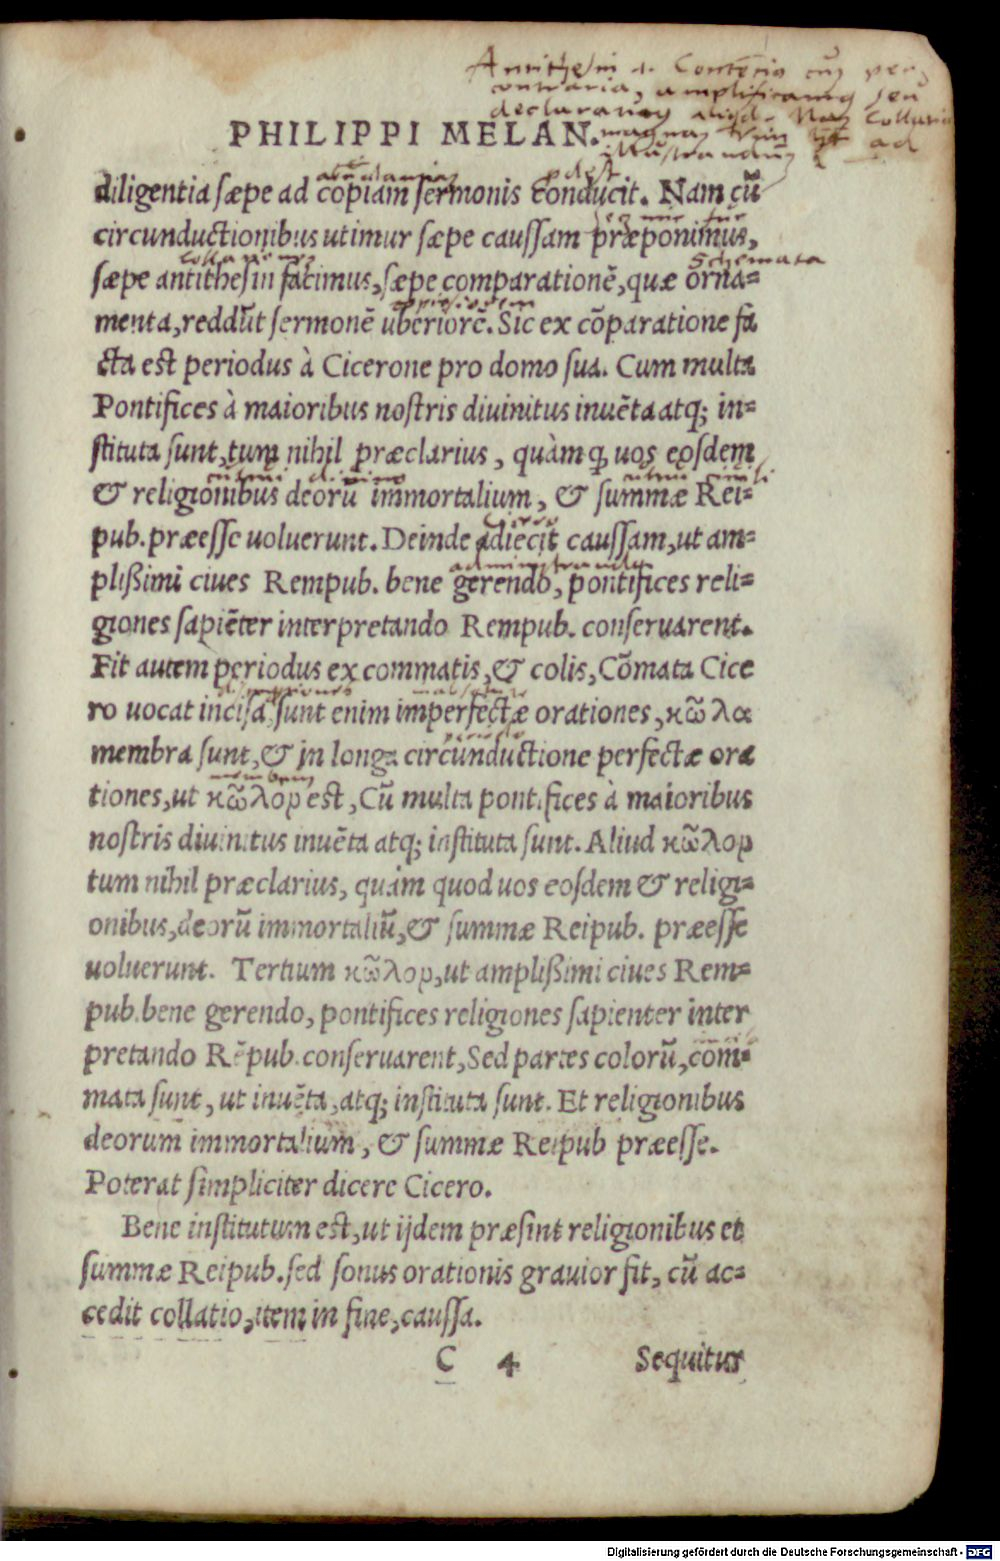 Antithesin
declarat
PHILIPPI MELAN.
ad
diligentia sæpe ad copiam sermonis conducit. Nam cũ
circunductionibus utimur sæpe caussam præponimus,
schemata
sæpe antithesin facimus, sæpe comparationẽ, quæ orna=
menta, reddũt sermonẽ uberiorẽ. Sic ex cõparatione fa
cta est periodus à Cicerone pro domo sua. Cum multa
Pontifices à maioribus nostris diuinitus inuẽta atq; in=
stituta sunt, tum nihil præclarius, quàm q̃ uos eosdem
& religionibus deorũ immortalium, & summæ Rei=
Cicero
pub. præesse uoluerunt. Deinde adiecit caussam, ut am=
administrando
plißimi ciues Rempub. bene gerendo, pontifices reli=
giones sapiẽter interpretando Rempub. conseruarent.
Fit autem periodus ex commatis, & colis, Cõmata Cice
ro uocat incisa, sunt enim imperfectæ orationes, κῶλα
periodo
membra sunt, & in longa circunductione perfectæ ora
membrum
tiones, ut κῶλον est, Cũ multa pontifices à maioribus
nostris diuinitus inuẽta atq; instituta sunt. Aliud κῶλον
tum nihil præclarius, quàm quod uos eosdem & religi=
onibus, deorũ immortaliũ, & summæ Reipub. præesse
uoluerunt. Tertium κῶλον, ut amplißimi ciues Rem=
pub. bene gerendo, pontifices religiones sapienter inter
pretando Rẽpub. conseruarent, Sed partes colorũ, com=
mata sunt, ut inuẽta, atq; instituta sunt. Et religionibus
deorum immortalium, & summæ Reipub præesse.
Poterat simpliciter dicere Cicero.
Bene institutum est, ut ijdem præsint religionibus et
summæ Reipub. sed sonus orationis grauior fit, cũ ac=
cedit collatio, item in fine, caussa.
C 4 Sequitur
Digitalisierung gefördert durch die Deutsche Forschungsgemeinschaft - DFG